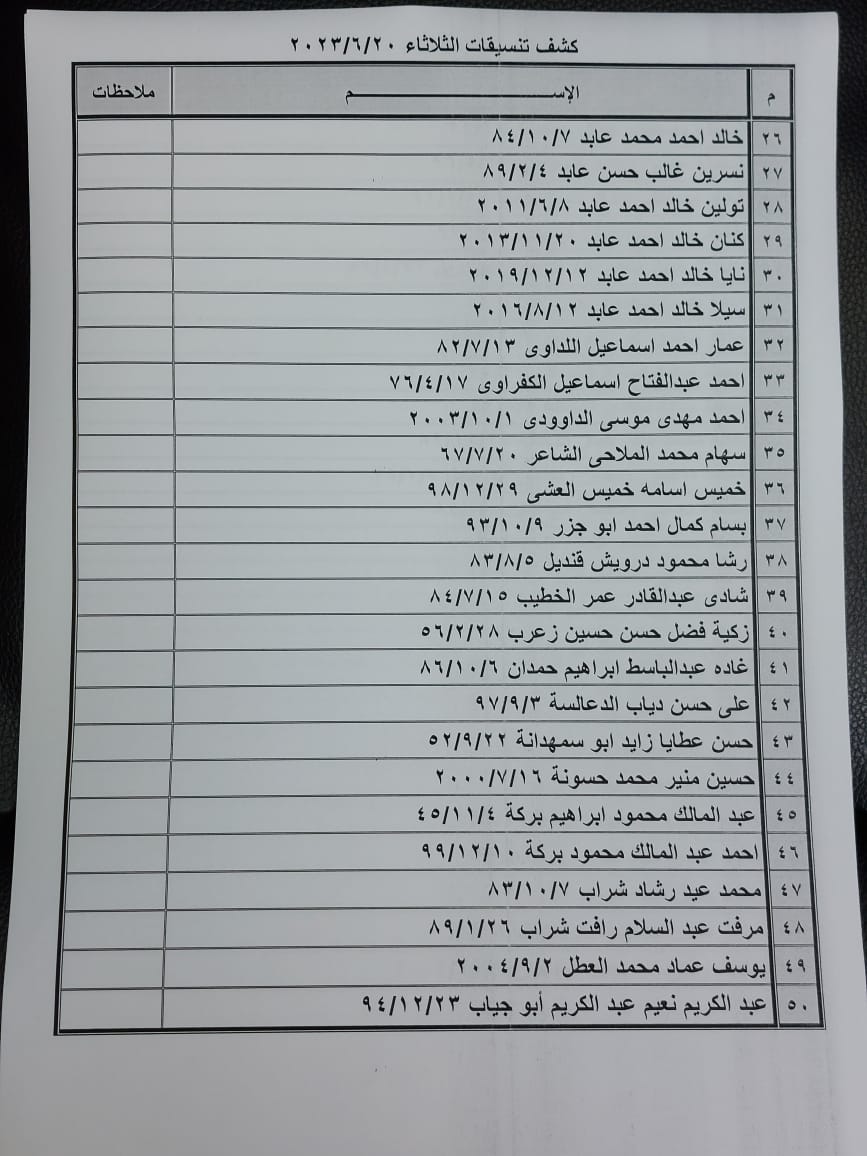 كشف تنسيقات الثلاثاء ٢٠٢٣/٦/٢٠
م الإســـــــــم ملاحظات
٢٦ خالد احمد محمد عابد ٨٤/١٠/٧
٢٧ نسرين غالب حسن عابد ٨٩/٢/٤
٢٨ تولين خالد احمد عابد ٢٠١١/٦/٨
٢٩ كنان خالد احمد عابد ٢٠١٣/١١/٢٠
٣٠ نايا خالد احمد عابد ٢٠١٩/١٢/١٢
٣١ سيلا خالد احمد عابد ٢٠١٦/٨/١٢
٣٢ عمار احمد اسماعيل اللداوى ٨٢/٧/١٣
٣٣ احمد عبدالفتاح اسماعيل الكفراوى ٧٦/٤/١٧
٣٤ احمد مهدى موسى الداوودى ٢٠٠٣/١٠/١
٣٥ سهام محمد الملاحى الشاعر ٦٧/٧/٢٠
٣٦ خميس اسامه خميس العشى ٩٨/١٢/٢٩
٣٧ بسام كمال احمد ابو جزر ٩٣/١٠/٩
٣٨ رشا محمود درويش قنديل ٨٣/٨/٥
٣٩ شادى عبدالقادر عمر الخطيب ٨٤/٧/١٥
٤٠ زكية فضل حسن حسين زعرب ٥٦/٢/٢٨
٤١ غاده عبدالباسط ابراهيم حمدان ٨٦/١٠/٦
٤٢ على حسن دياب الدعالسة ٩٧/٩/٣
٤٣ حسن عطايا زايد ابو سمهدانة ٥٢/٩/٢٢
٤٤ حسين منير محمد حسونة ٢٠٠٠/٧/١٦
٤٥ عبد المالك محمود ابراهيم بركة ٤٥/١١/٤
٤٦ احمد عبد المالك محمود بركة ٩٩/١٢/١٠
٤٧ محمد عيد رشاد شراب ٨٣/١٠/٧
٤٨ مرفت عبد السلام رافت شراب ٨٩/١/٢٦
٤٩ يوسف عماد محمد العطل ٢٠٠٤/٩/٢
٥٠ عبد الكريم نعيم عبد الكريم أبو جياب ٩٤/١٢/٢٣